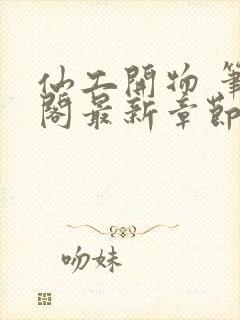 仙工開物 筆
閣最新章節
吻妹